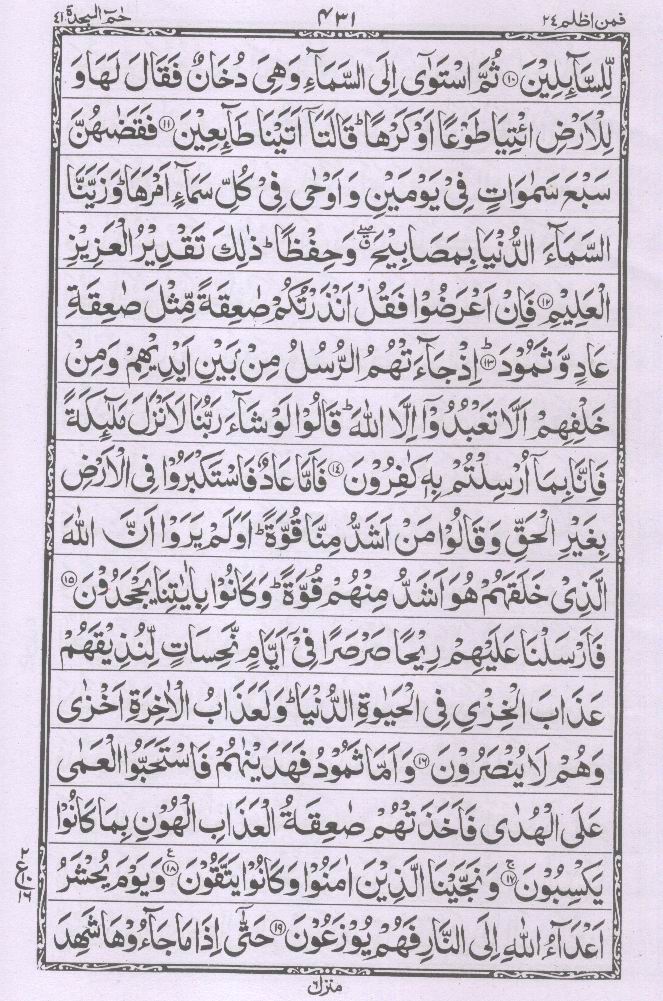 فمن اظلم ٢٤ ۴۳۱ حٰمٓ السجدة ٤١
لِّلسَّآىِٕلِيْنَ ۝١٠ ثُمَّ اسْتَوٰۤى اِلَى السَّمَآءِ وَهِيَ دُخَانٌ فَقَالَ لَهَا وَ
لِلْاَرْضِ ائْتِيَا طَوْعًا اَوْ كَرْهًا ؕ قَالَتَاۤ اَتَيْنَا طَآىِٕعِيْنَ ۝١١ فَقَضٰىهُنَّ
سَبْعَ سَمٰوَاتٍ فِيْ يَوْمَيْنِ وَ اَوْحٰى فِيْ كُلِّ سَمَآءٍ اَمْرَهَا ؕ وَزَيَّنَّا
السَّمَآءَ الدُّنْيَا بِمَصَابِيْحَ ۖۗ وَحِفْظًا ؕ ذٰلِكَ تَقْدِيْرُ الْعَزِيْزِ
الْعَلِيْمِ ۝١٢ فَاِنْ اَعْرَضُوْا فَقُلْ اَنْذَرْتُكُمْ صٰعِقَةً مِّثْلَ صٰعِقَةِ
عَادٍ وَّ ثَمُوْدَ ؕ ۝١٣ اِذْ جَآءَتْهُمُ الرُّسُلُ مِنْ بَيْنِ اَيْدِيْهِمْ وَمِنْ
خَلْفِهِمْ اَلَّا تَعْبُدُوْۤا اِلَّا اللّٰهَ ؕ قَالُوْا لَوْ شَآءَ رَبُّنَا لَاَنْزَلَ مَلٰٓىِٕكَةً
فَاِنَّا بِمَاۤ اُرْسِلْتُمْ بِهٖ كٰفِرُوْنَ ۝١٤ فَاَمَّا عَادٌ فَاسْتَكْبَرُوْا فِى الْاَرْضِ
بِغَيْرِ الْحَقِّ وَ قَالُوْا مَنْ اَشَدُّ مِنَّا قُوَّةً ؕ اَوَلَمْ يَرَوْا اَنَّ اللّٰهَ
الَّذِيْ خَلَقَهُمْ هُوَ اَشَدُّ مِنْهُمْ قُوَّةً ؕ وَكَانُوْا بِاٰيٰتِنَا يَجْحَدُوْنَ ۝١٥
فَاَرْسَلْنَا عَلَيْهِمْ رِيْحًا صَرْصَرًا فِيْۤ اَيَّامٍ نَّحِسَاتٍ لِّنُذِيْقَهُمْ
عَذَابَ الْخِزْيِ فِى الْحَيٰوةِ الدُّنْيَا ؕ وَ لَعَذَابُ الْاٰخِرَةِ اَخْزٰى
وَهُمْ لَا يُنْصَرُوْنَ ۝١٦ وَ اَمَّا ثَمُوْدُ فَهَدَيْنٰهُمْ فَاسْتَحَبُّوا الْعَمٰى
عَلَى الْهُدٰى فَاَخَذَتْهُمْ صٰعِقَةُ الْعَذَابِ الْهُوْنِ بِمَا كَانُوْا
يَكْسِبُوْنَ ۚ ۝١٧ وَ نَجَّيْنَا الَّذِيْنَ اٰمَنُوْا وَ كَانُوْا يَتَّقُوْنَ ۝١٨ ع وَ يَوْمَ يُحْشَرُ
٢ ع ١٠ ١٦
اَعْدَآءُ اللّٰهِ اِلَى النَّارِ فَهُمْ يُوْزَعُوْنَ ۝١٩ حَتّٰۤى اِذَا مَا جَآءُوْهَا شَهِدَ
منزل ٦